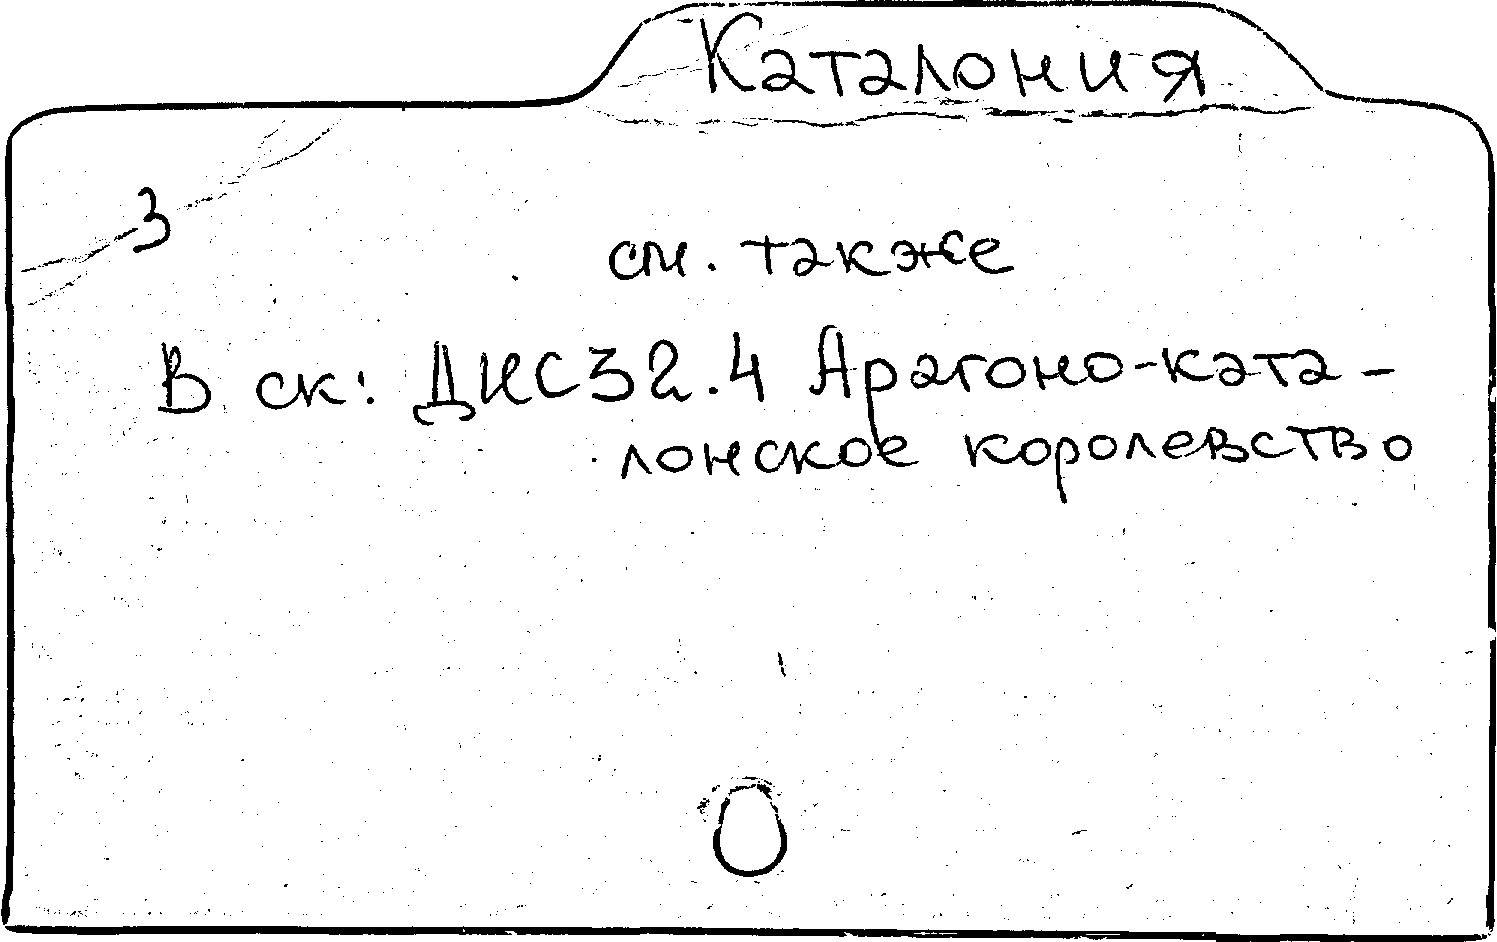 Каталония
3
см. также
В ск: ДИС32.4 Арагоно-ката-
лонское королевство